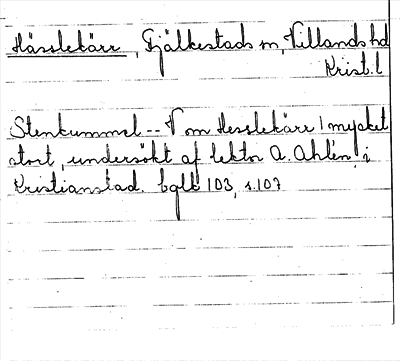 Hässlekärr, Fjälkestads sn, Villands hd
Krist. l
Stenkummel -- V om Hesslekärr 1 mycket
stort, undersökt af lektor A. Ahlén i
Kristianstad. bglk 103, s. 107